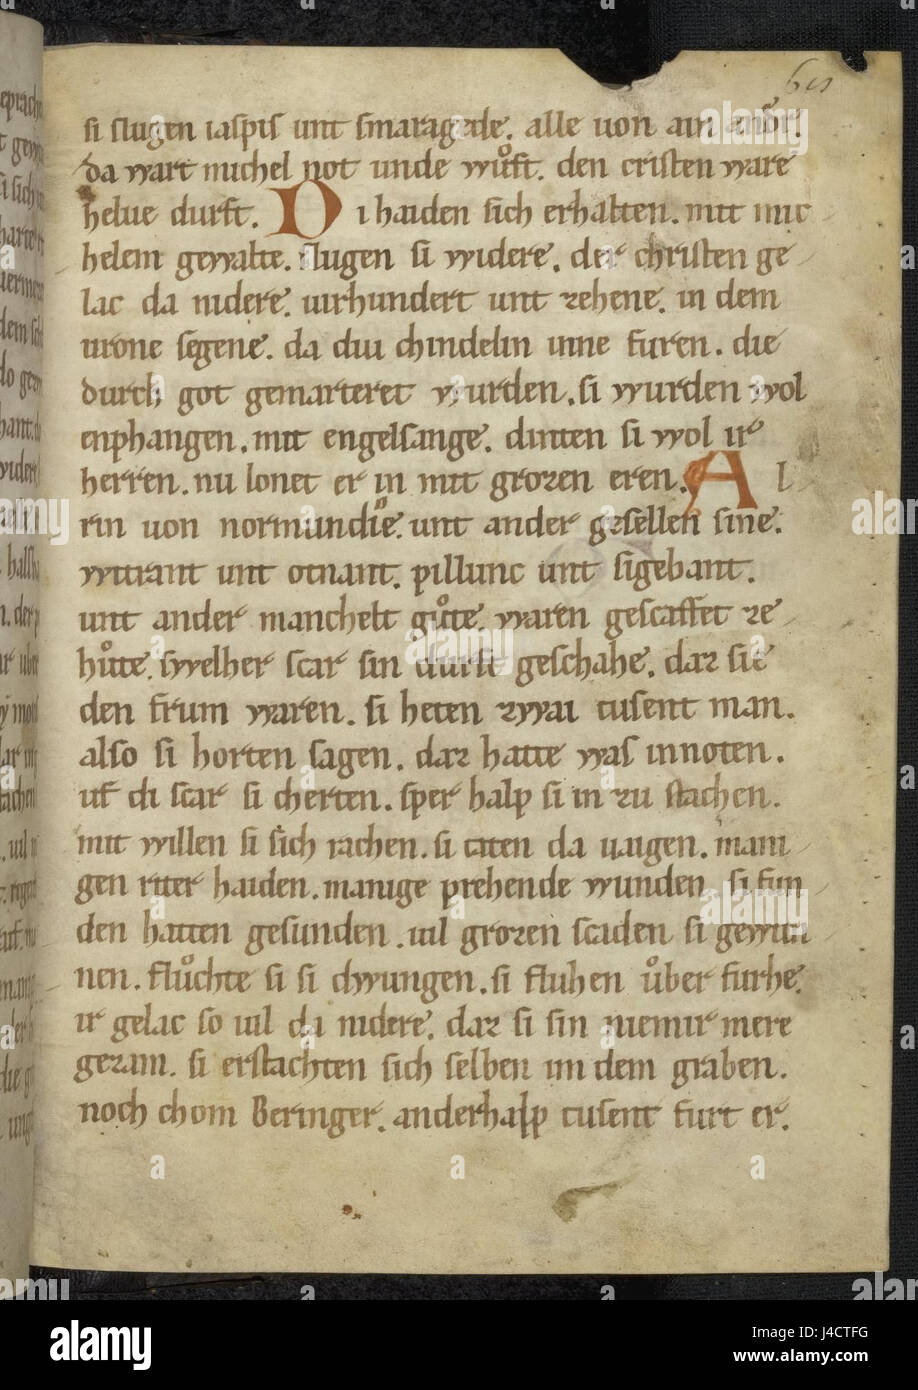 61
si slugen iaspis unt smaragede. alle uon ain andͦr.
da wart michel not unde wůft. den cristen ware
helue durft. Di haiden sich erhalten. mit mic
helem gewalte. slugen si widere. der christen ge
lac da nidere. uirhundert unt zehene. in dem
urone segene. da diu chindelin inne furen. die
durch got gemarteret wurden. si wurden wol
enphangen. mit engelsange. dinten si wol ir
herren. nu lonet er in mit grozen eren. Al
rin uon normundie. unt ander gesellen sine.
witrant unt otnant. pillunc unt sigebant.
unt ander manchelt gůte. waren gescaffet ze
hůte. swelher scar sin durft geschahe. daz sie
den frum waren. si heten zwai tusent man.
also si horten sagen. daz hatte was in noten.
uf di scar si cherten. sper halp si in zu stachen.
mit willen si sich rachen. si taten da uaigen. mani
gen riter haiden. manige prehende wunden. si fun
den hatten gesunden. uil grozen scaden si gewun
nen. fluͦchte si si chwungen. si fluhen ůber furhe.
ir gelac so uil da nidere. daz si sin niemir mere
gezam. si erstachten sich selben in dem graben.
noch chom Beringer. anderhalp tusent furt er.
a alamy stock photo
J4CTFG
www.alamy.com